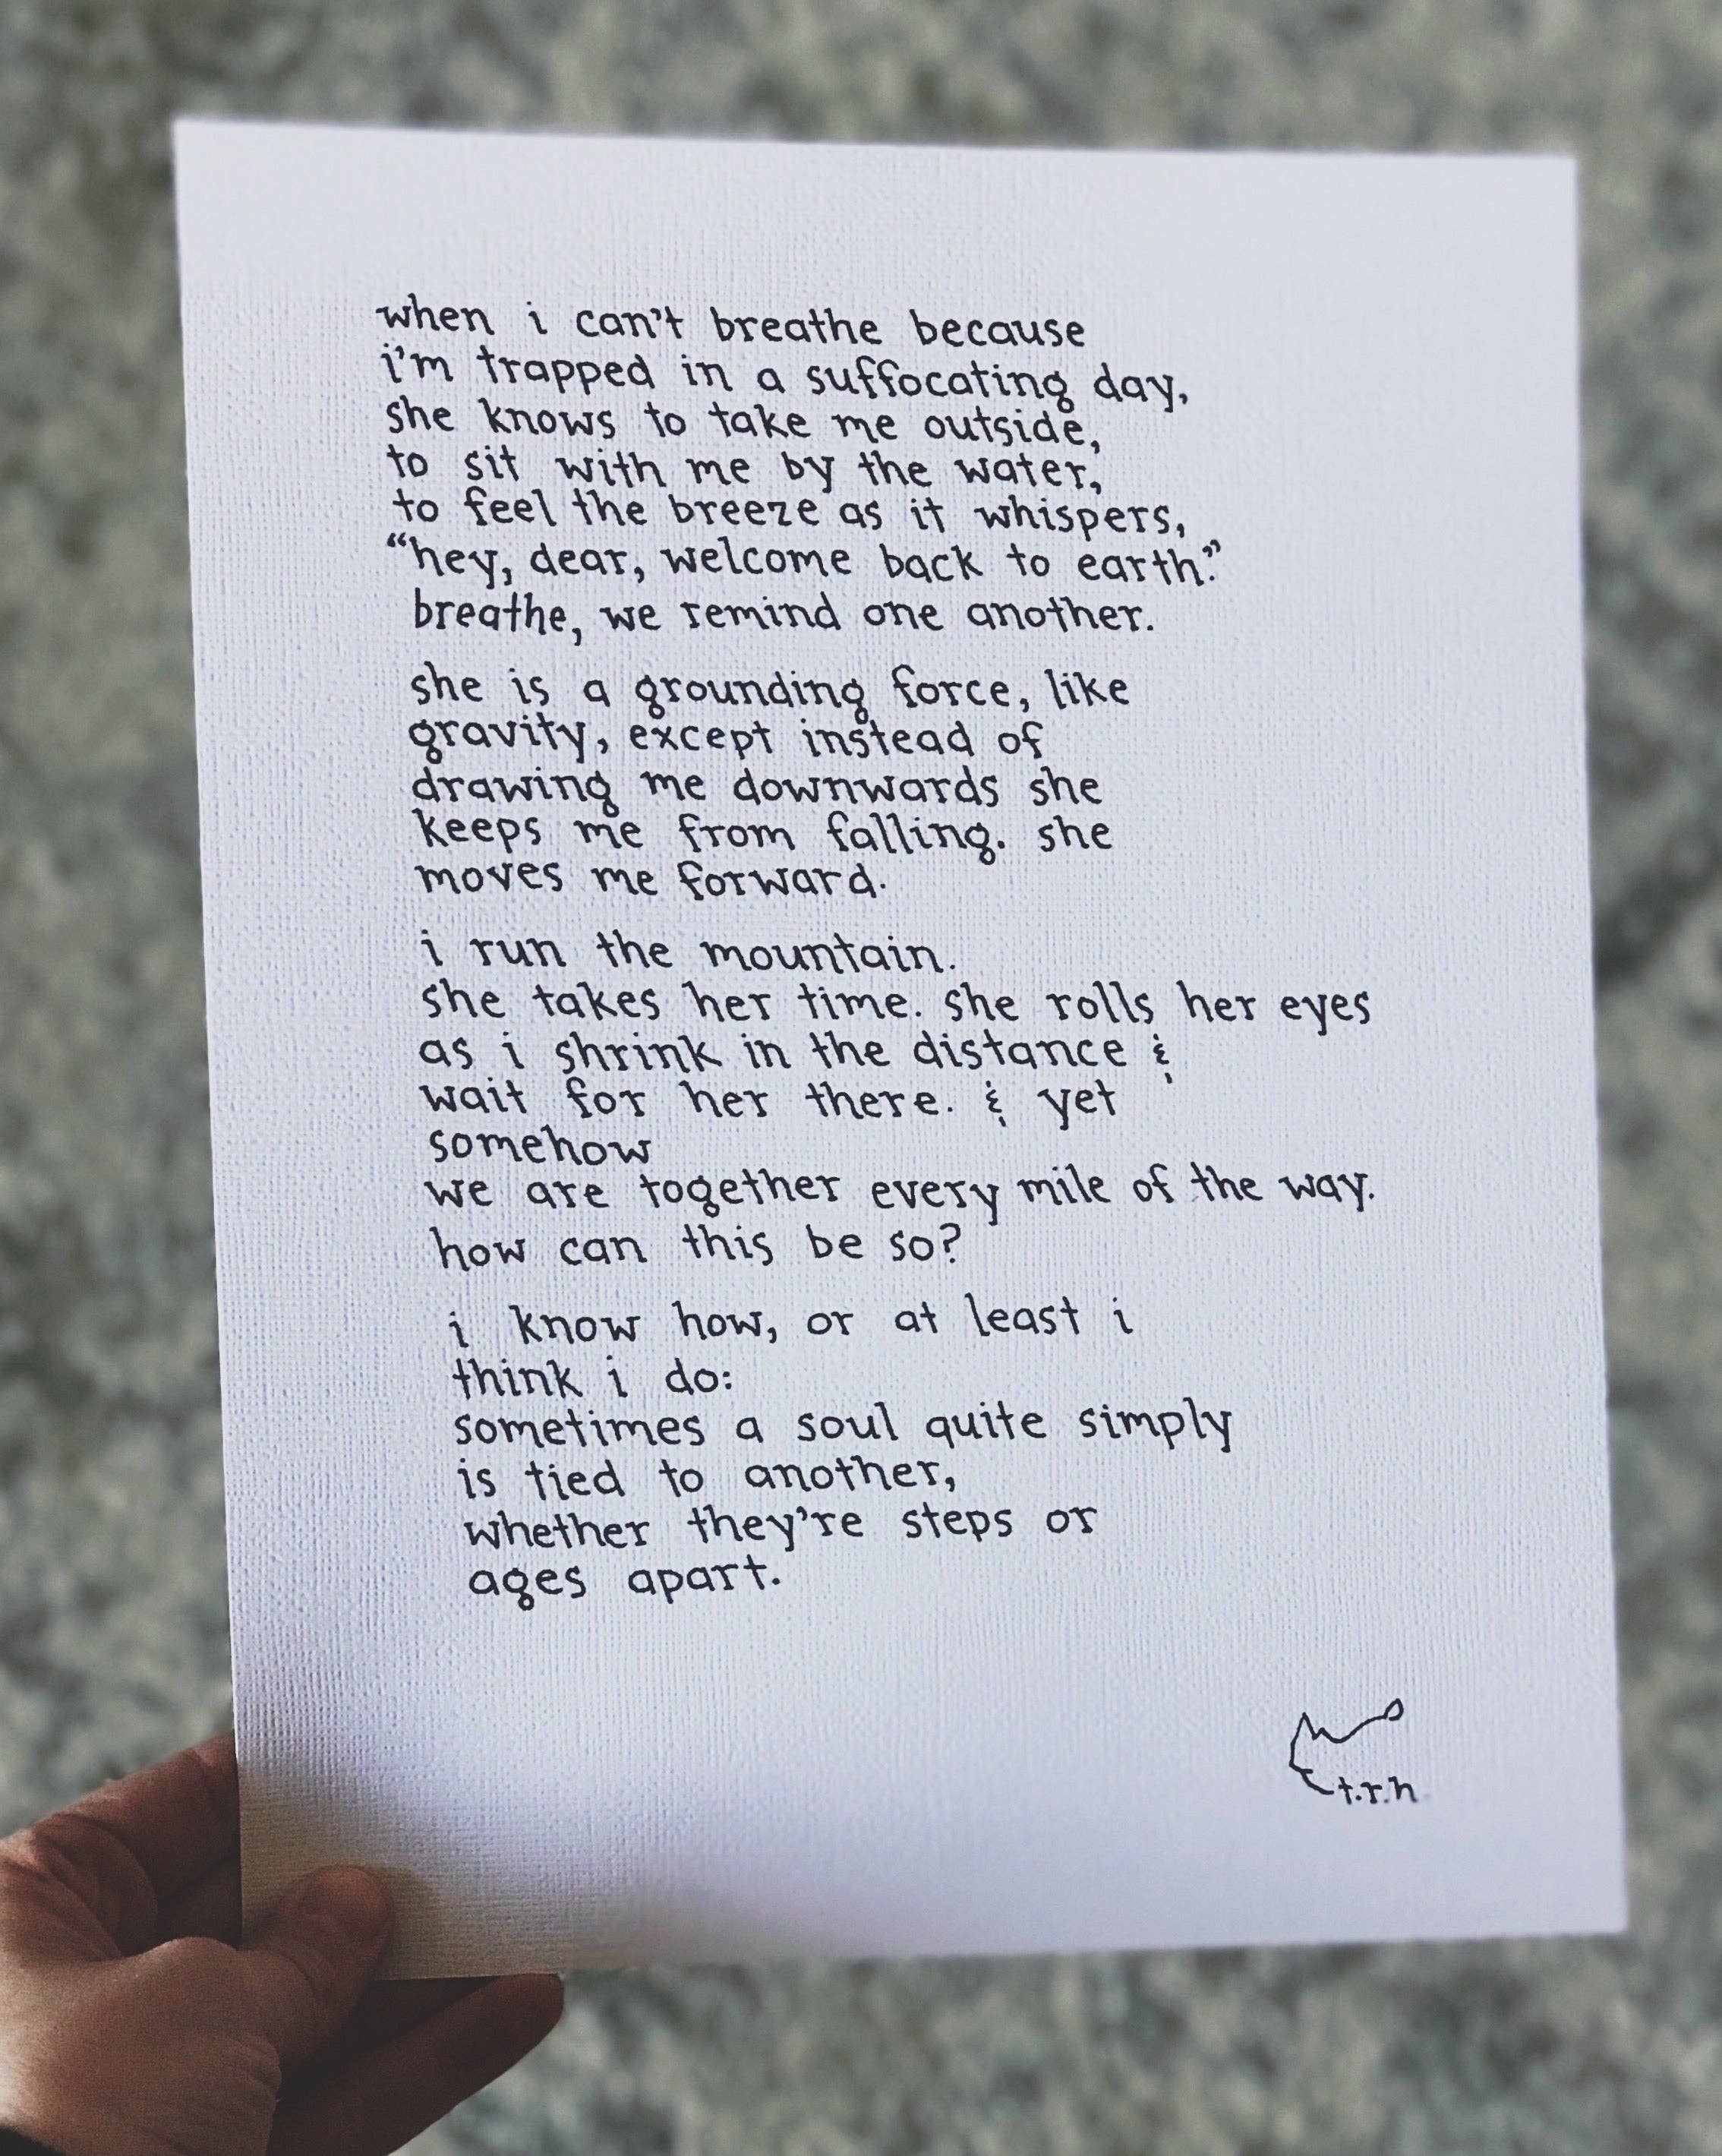 when i can't breathe because
i'm trapped in a suffocating day,
she knows to take me outside,
to sit with me by the water,
to feel the breeze as it whispers,
“hey, dear, welcome back to earth.”
breathe, we remind one another.
she is a grounding force, like
gravity, except instead of
drawing me downwards she
keeps me from falling. she
moves me forward.
i run the mountain.
she takes her time. she rolls her eyes
as i shrink in the distance &
wait for her there. & yet
somehow
we are together every mile of the way.
how can this be so?
i know how, or at least i
think i do:
sometimes a soul quite simply
is tied to another,
whether they're steps or
ages apart.
t.r.h.